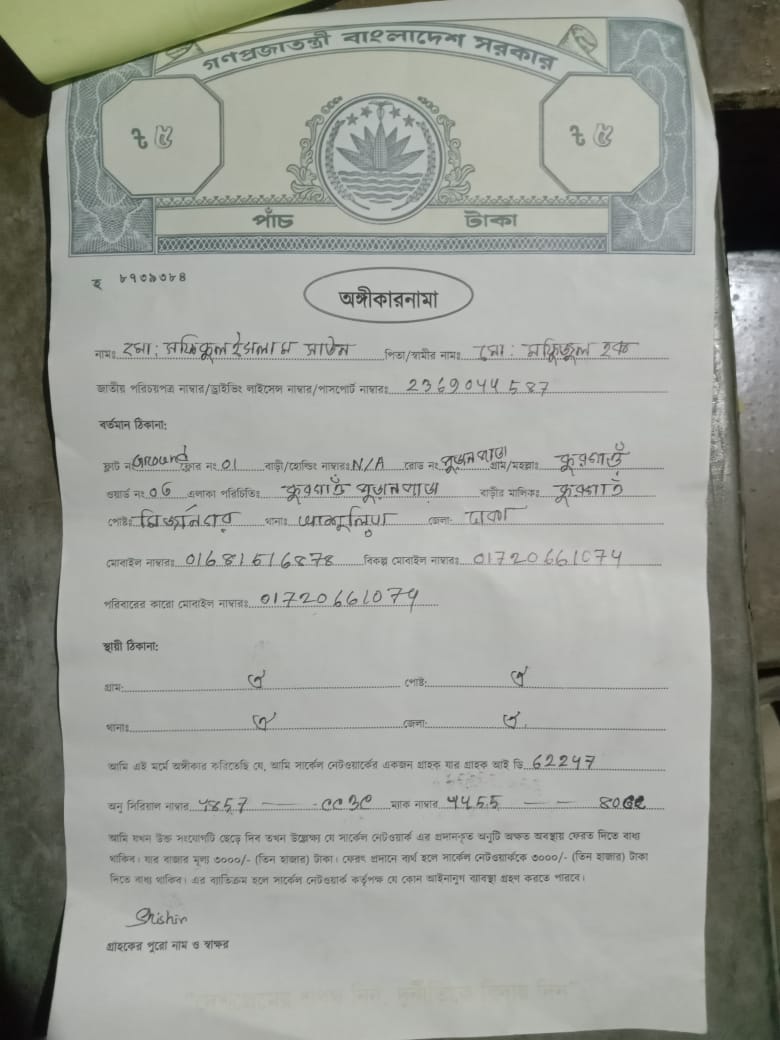 গণপ্রজাতন্ত্রী বাংলাদেশ সরকার
৳ ৫ ৳ ৫
পাঁচ টাকা
হ ৮৭৩৯৩৮৪
অঙ্গীকারনামা
নামঃ মো: সফিকুল ইসলাম পিতা/স্বামীর নামঃ মো: মফিজুল হক
জাতীয় পরিচয়পত্র নাম্বার/ড্রাইভিং লাইসেন্স নাম্বার/পাসপোর্ট নাম্বারঃ 2369044587
বর্তমান ঠিকানা:
ফ্লাট নং Ground ফ্লোর নং 01 বাড়ী/হোল্ডিং নাম্বারঃ N/A রোড নং পুরানপাড়া গ্রাম/মহল্লাঃ কুরগাঁও
ওয়ার্ড নং 06 এলাকা পরিচিতিঃ কুরগাঁও পুরানপাড়া বাড়ীর মালিকঃ কুরগাঁও
পোষ্টঃ মির্জানগর থানাঃ আশুলিয়া জেলা: ঢাকা
মোবাইল নাম্বারঃ 01681516878 বিকল্প মোবাইল নাম্বারঃ 01720661074
পরিবারের কারো মোবাইল নাম্বারঃ 01720661074
স্থায়ী ঠিকানা:
গ্রাম: ঐ পোষ্ট: ঐ
থানাঃ ঐ জেলা: ঐ
আমি এই মর্মে অঙ্গীকার করিতেছি যে, আমি সার্কেল নেটওয়ার্কের একজন গ্রাহক যার গ্রাহক আই ডি 62247
অনু সিরিয়াল নাম্বার 4857 — CC3C ম্যাক নাম্বার 4455 — —
আমি যখন উক্ত সংযোগটি ছেড়ে দিব তখন উল্লেক্ষ্য যে সার্কেল নেটওয়ার্ক এর প্রদানকৃত অনুটি অক্ষত অবস্থায় ফেরত দিতে বাধ্য
থাকিব। যার বাজার মূল্য ৩০০০/- (তিন হাজার) টাকা। ফেরৎ প্রদানে ব্যর্থ হলে সার্কেল নেটওয়ার্ককে ৩০০০/- (তিন হাজার) টাকা
দিতে বাধ্য থাকিব। এর ব্যতিক্রম হলে সার্কেল নেটওয়ার্ক কর্তৃপক্ষ যে কোন আইনানুগ ব্যবস্থা গ্রহণ করতে পারবে।
Shishir
গ্রাহকের পুরো নাম ও স্বাক্ষর